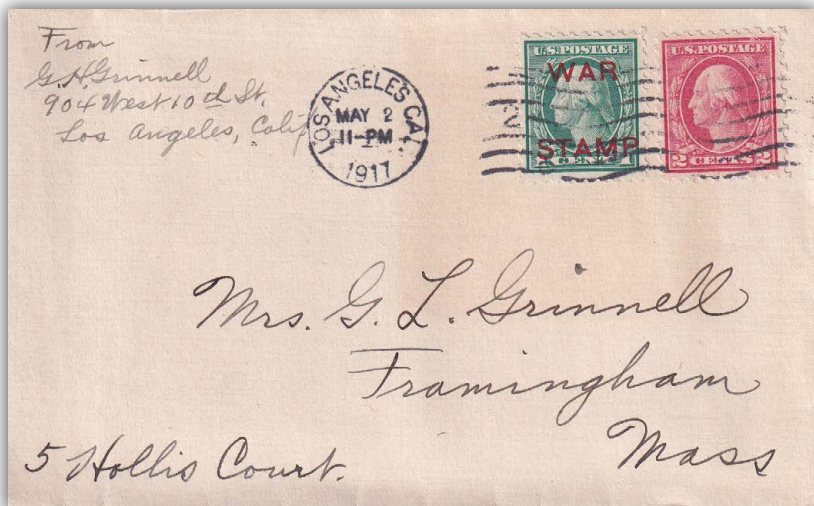 From
G.H.Grinnell
904 West 10th St.
Los Angeles, Calif
LOS ANGELES CAL
MAY 2
11-PM
1917
U.S.POSTAGE
WAR
STAMP
CENT 1
U.S.POSTAGE
2 CENTS 2
Mrs. G. L. Grinnell
Framingham
Mass
5 Hollis Court.